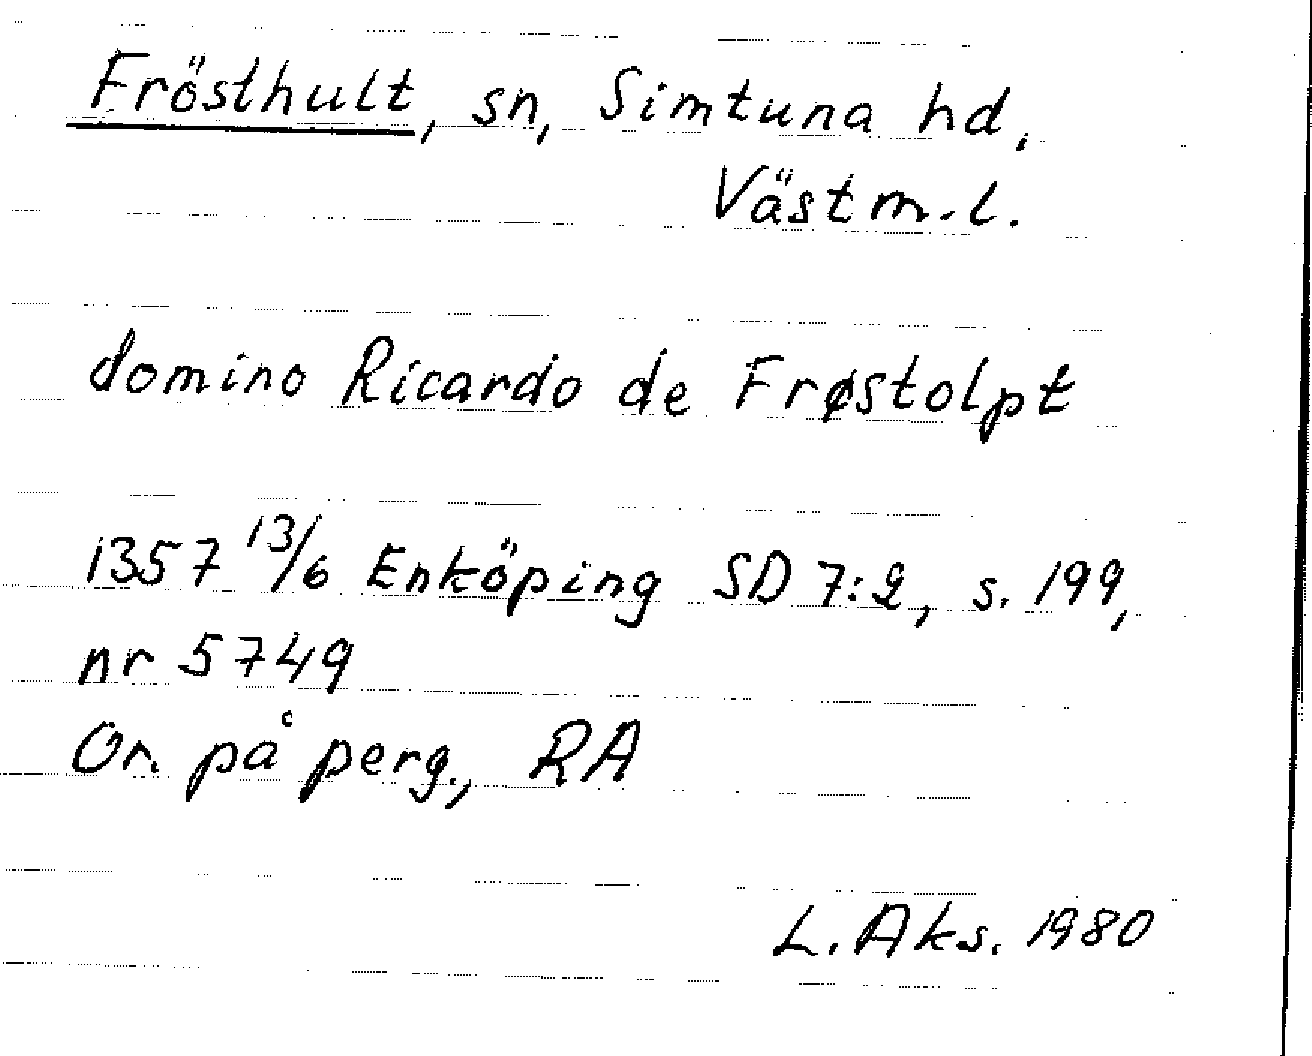 Frösthult, sn, Simtuna hd,
Västm.l.
domino Ricardo de Frøstolpt
1357 13/6 Enköping SD 7:2, s. 199,
nr 5749
Or. på perg., RA
L. Aks. 1980